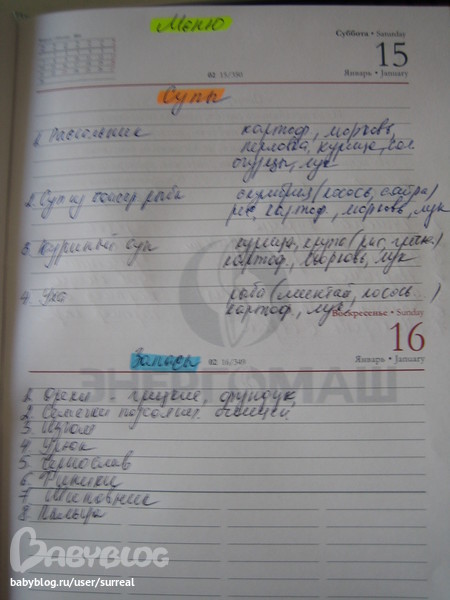 Меню
Суббота • Saturday
15
02 15/350
Январь • January
Супы
1. Рассольник картоф., морковь,
перловка, курица, сол.
огурцы, лук
2. Суп из консер. рыбы скумбрия (лосось, сайра)
рис, картоф., морковь, лук
3. Куриный суп курица, крупа (рис, греч.)
картоф., морковь, лук
4. Уха рыба (минтай, лосось...)
картоф., лук
Воскресенье • Sunday
16
Запасы
02 16/349
Январь • January
ЭНЕРГОМАШ
1. Орехи - грецкие, фундук,
2. Семечки подсолнеч.
3. Изюм
4. Урюк
5. Чернослав
6. Финики
7. Шиповник
8.
BABYBLOG
babyblog.ru/user/surreal